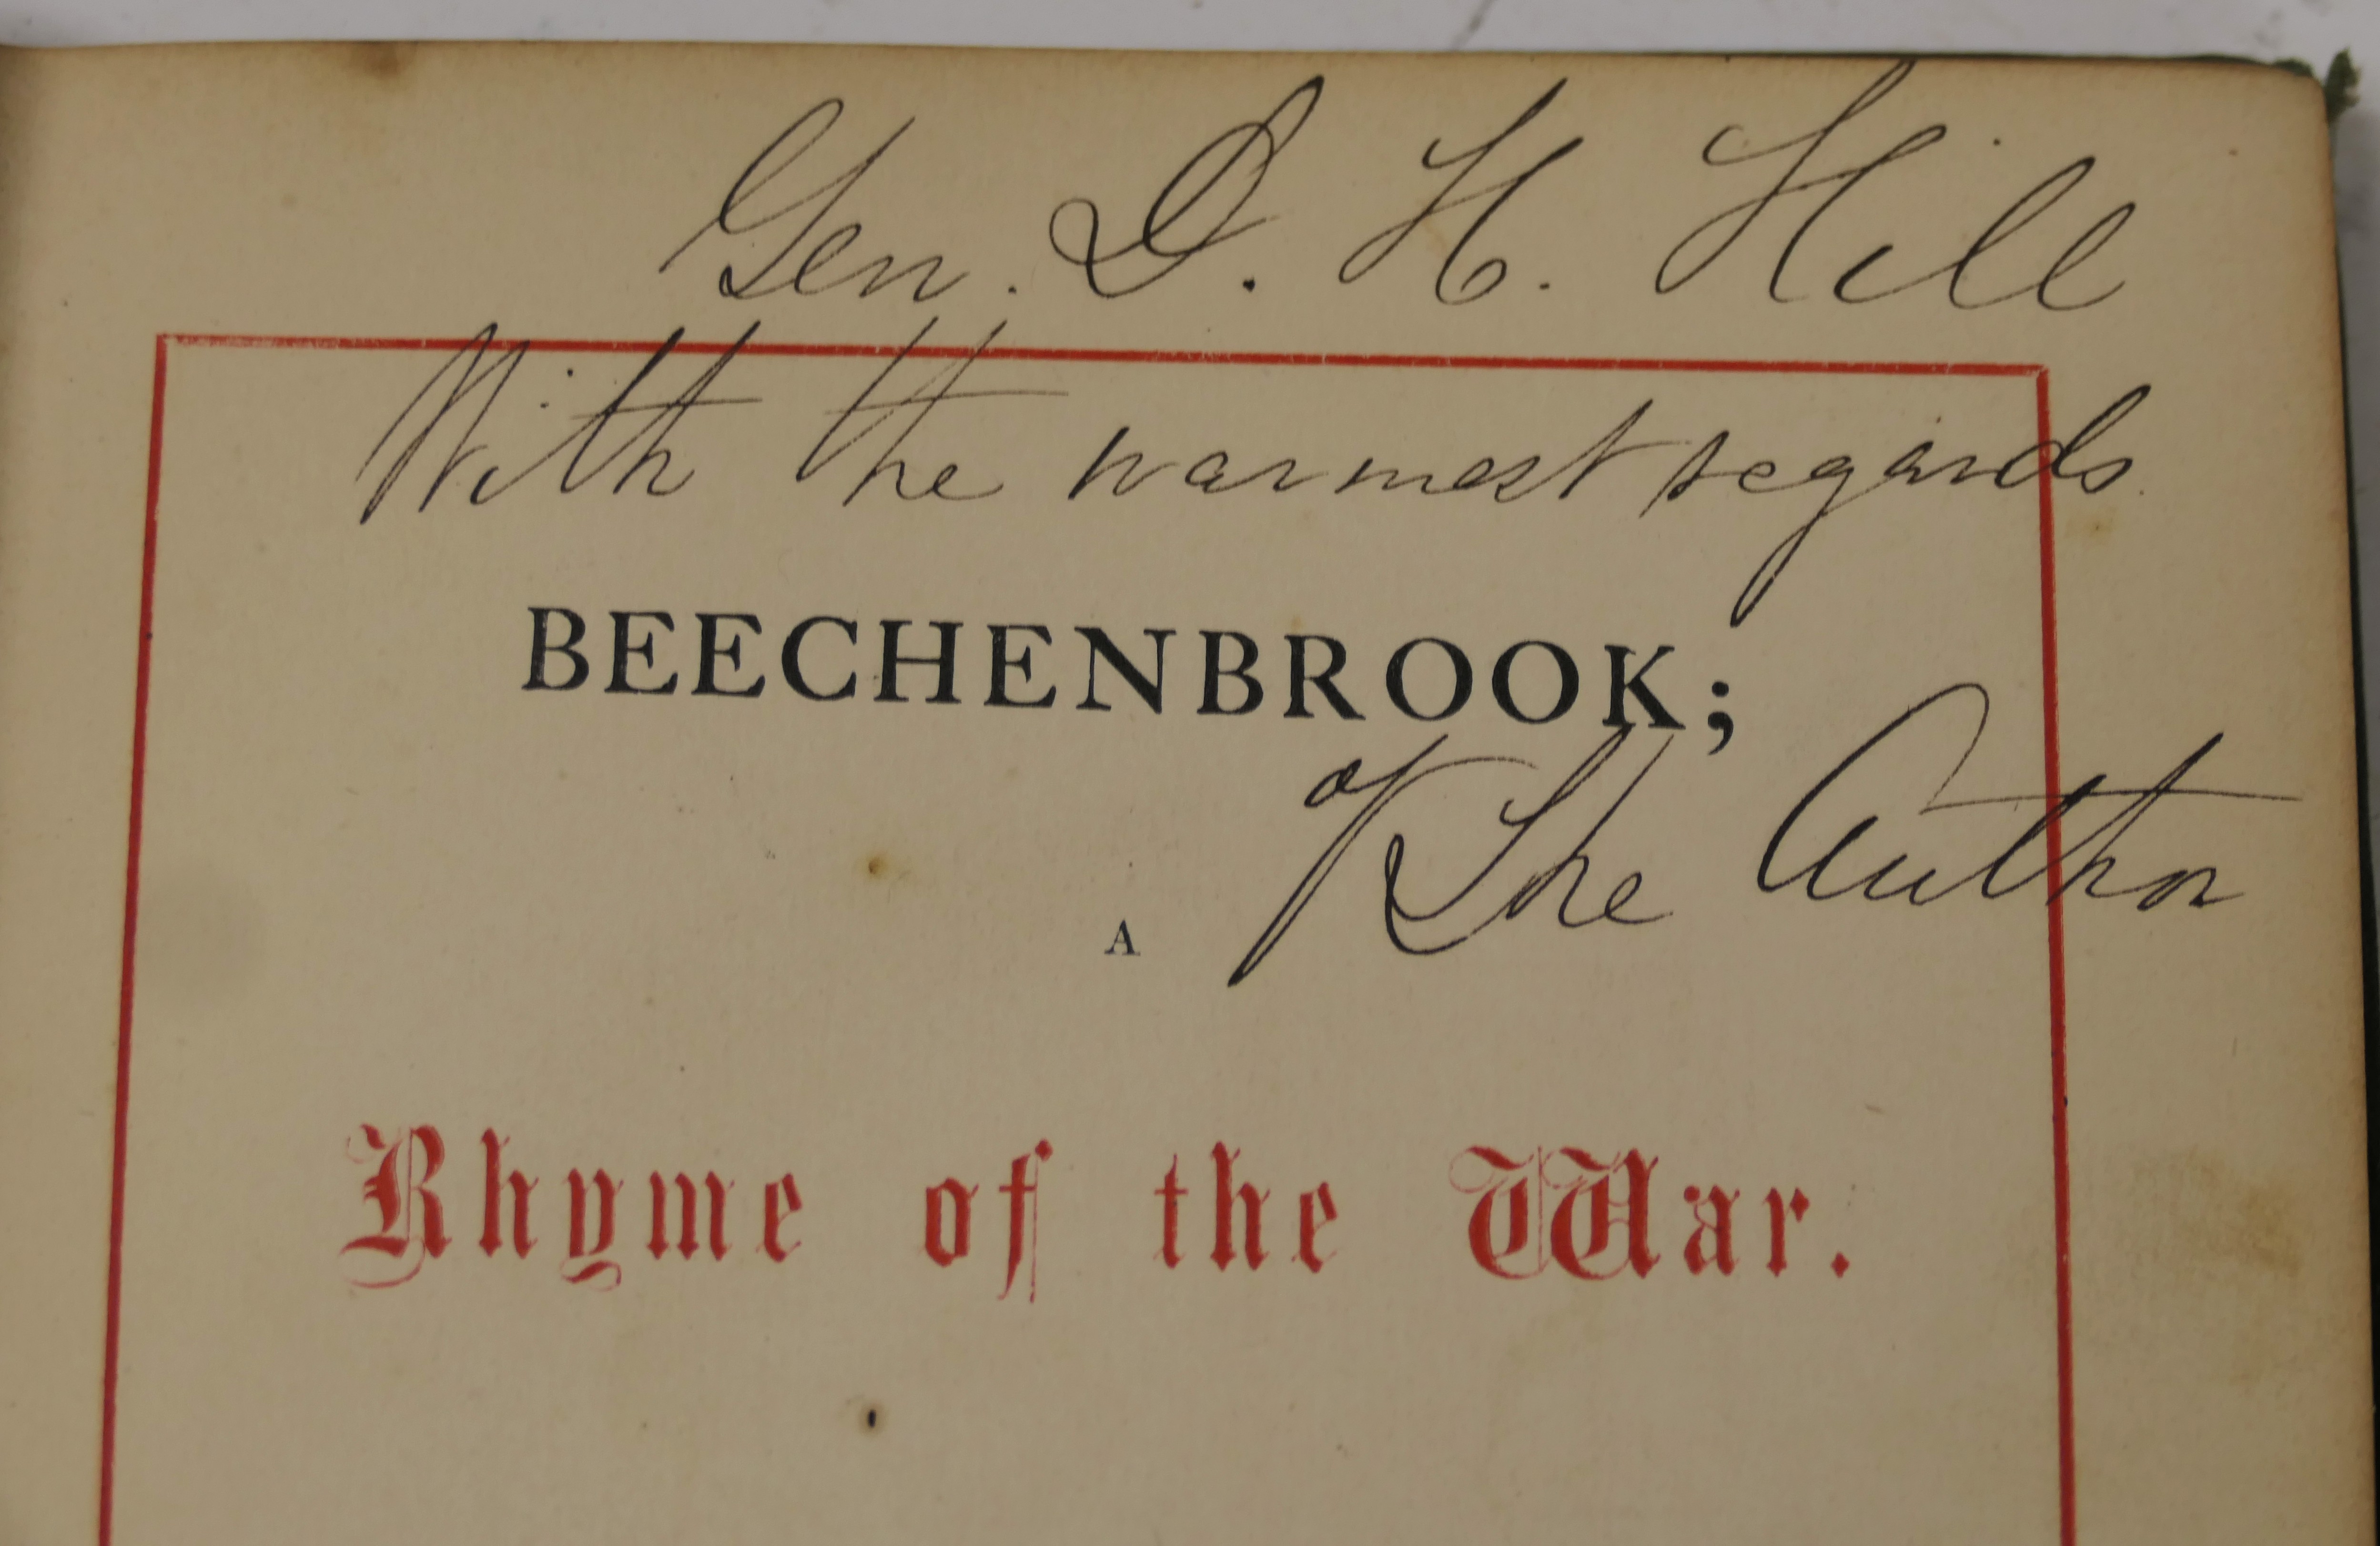 Gen. D. H. Hill
With the warmest regards
BEECHENBROOK;
of The Author
A
Rhyme of the War.